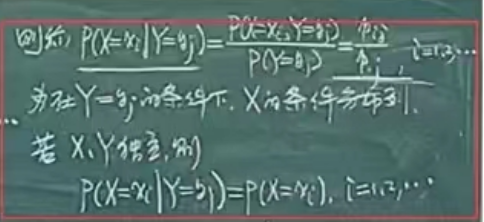 则称 P(X=xi|Y=yj)=P(X=xi,Y=yj)/P(Y=yj)=pij/p·j, i=1,2,…
为在Y=yj的条件下,X的条件分布列.
若 X,Y独立,则
P(X=xi|Y=yj)=P(X=xi), i=1,2,…